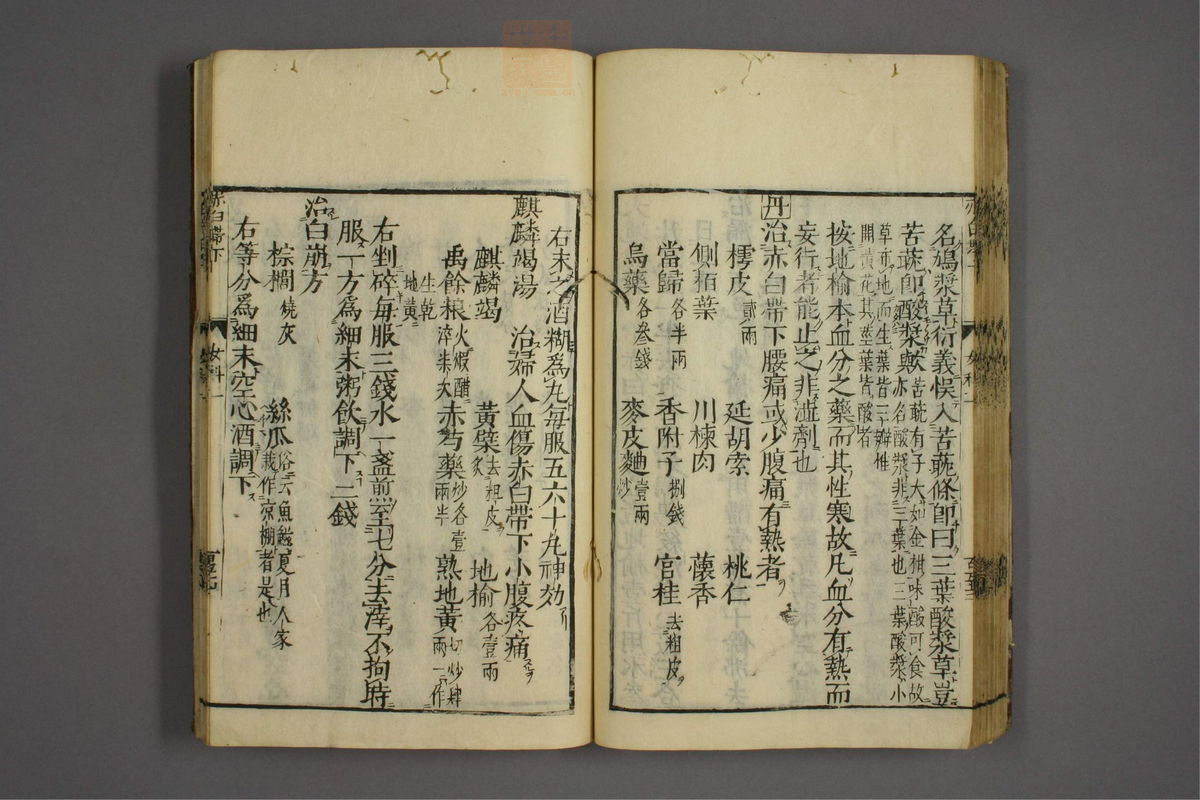 名鳩漿草衍義悞入苦蘵條即曰三葉酸漿草豈
苦蘵即酸漿歟苦蘵有子大如金柑味酸可食故
亦名酸漿非三葉也三葉酸漿小
草布地而生葉皆三瓣惟
開黄花其莖葉皆酸者
按地榆本血分之藥而其性寒故凡血分有熱而
妄行者能止之非澁劑也
丹治赤白帶下腰痛或少腹痛有熱者
樗皮貳兩 延胡索 桃仁
側栢葉 川楝肉 蘹香
當歸各半兩 香附子捌錢 官桂去粗皮
烏藥各叁錢 麥皮麯炒壹兩
右末之酒糊爲丸每服五六十丸神効
麒麟竭湯 治婦人血傷赤白帶下小腹疼痛
麒麟竭 黃蘗去粗皮炙 地榆各壹兩
禹餘粮火煆醋淬柒次 赤芍藥炒各壹兩半 熟地黃切炒肆兩一作
生乾地黃
右剉碎每服三錢水一盞煎至七分去滓不拘時
服一方爲細末粥飲調下二錢
治白崩方
棕櫚燒灰 絲瓜俗云魚鰦夏月人家栽作凉棚者是也
右等分爲細末空心酒調下
赤白帶下
女科一